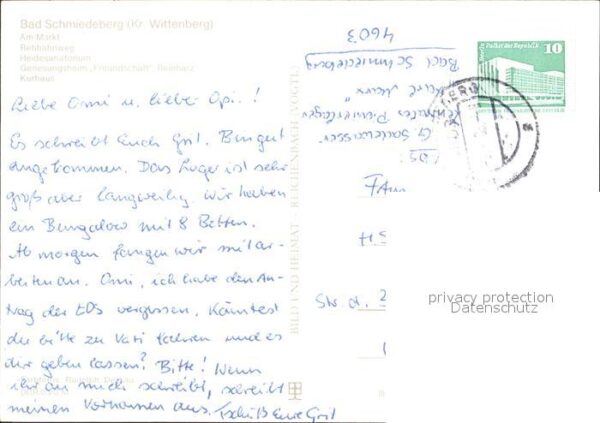 Bad Schmiedeberg (Kr. Wittenberg)
Am Markt
Rehhahnweg
Heidesanatorium
Genesungsheim „Freundschaft“, Reinharz
Kurhaus
Liebe Omi u. liebe Opi.!
Es schreibt Euch Grit. Bin gut
angekommen. Das Lager ist sehr
groß aber langweilig. Wir haben
ein Bungalow mit 8 Betten.
Ab morgen fangen wir mit ar-
beiten an. Omi, ich habe den An-
trag der EOS vergessen. Könntest
du bitte zu Vati fahren und es
dir geben lassen? Bitte! Wenn
ihr an mich schreibt, schreibt
meinen Vornamen aus. Tschüß Eure Grit
BILD UND HEIMAT REICHENBACH (VOGTL)
4603
Bad Schmiedeberg
Karl Marx
Zentrales Pionierlager
G.
Berlin Palast der Republik
10
Fam
Str. d. 2
privacy protection
Datenschutz